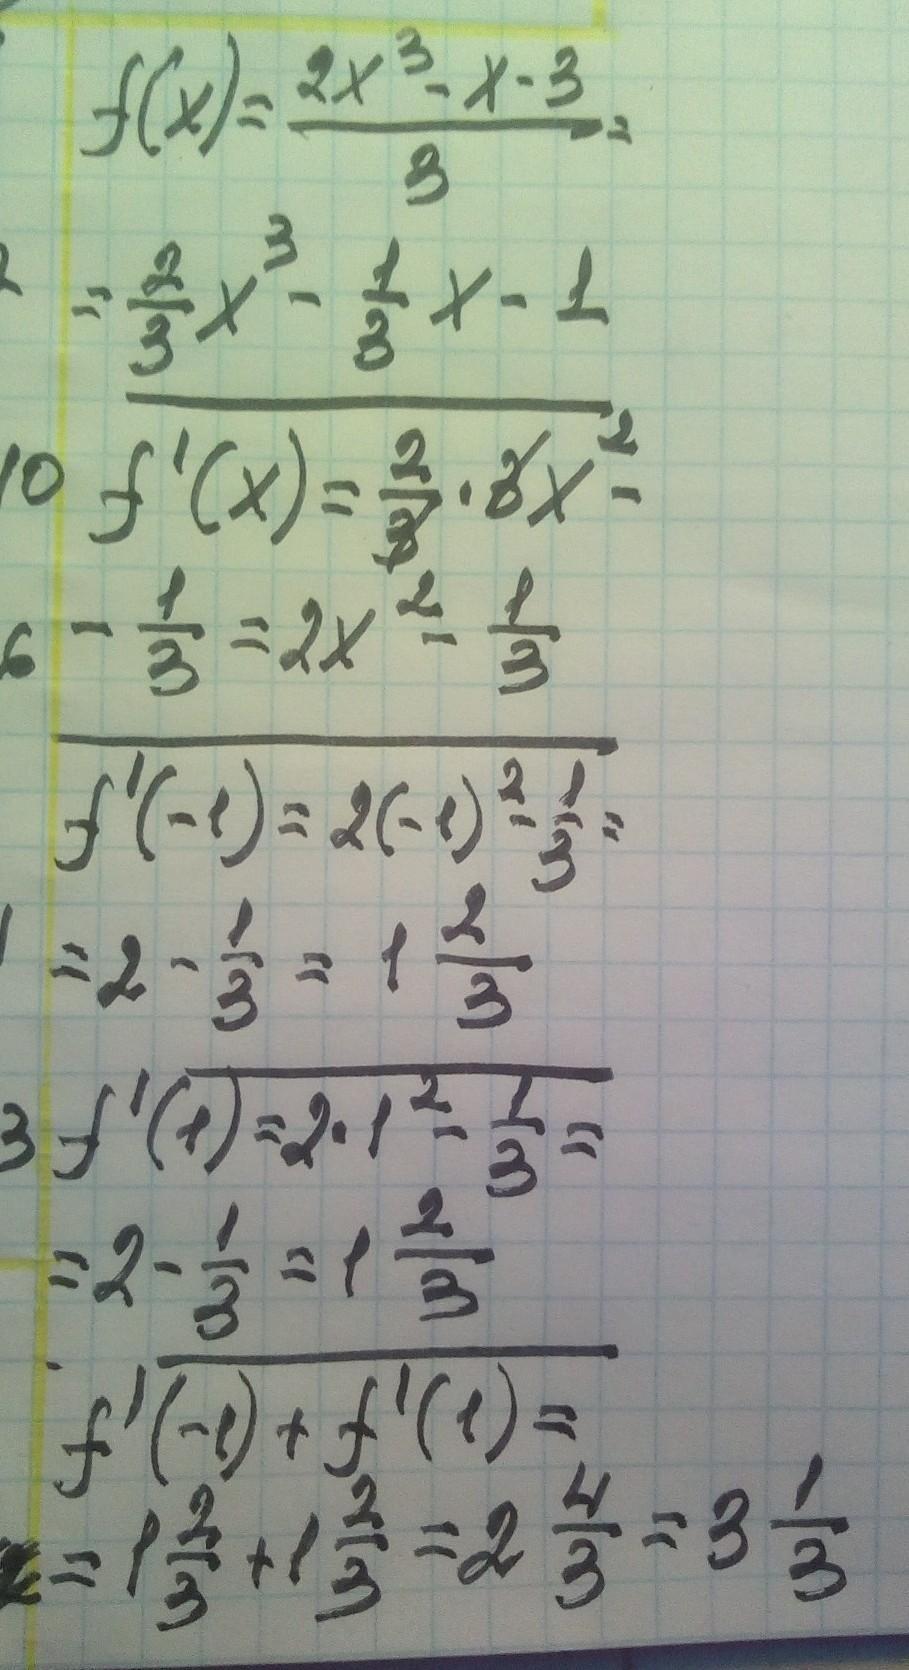 f(x) = (2x³ - x - 3)/3 =
= 2/3 x³ - 1/3 x - 1
10 f'(x) = 2/3 · 3x² -
6 - 1/3 = 2x² - 1/3
f'(-1) = 2(-1)² - 1/3 =
= 2 - 1/3 = 1 2/3
3 f'(1) = 2·1² - 1/3 =
= 2 - 1/3 = 1 2/3
f'(-1) + f'(1) =
= 1 2/3 + 1 2/3 = 2 4/3 = 3 1/3